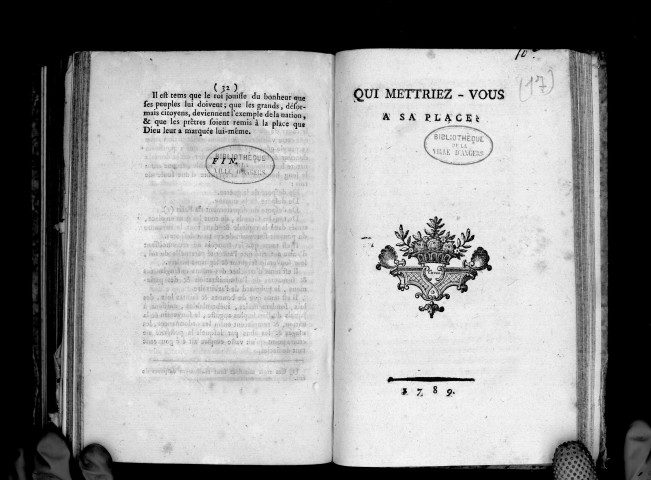 ( 32 )
Il est tems que le roi jouisse du bonheur que
ses peuples lui doivent; que les grands, désor-
mais citoyens, deviennent l'exemple de la nation,
& que les prêtres soient remis à la place que
Dieu leur a marqués lui-même.
FIN.
BIBLIOTHÈQUE
DE LA
VILLE D'ANGERS
10
(17)
QUI METTRIEZ - VOUS
A SA PLACE?
BIBLIOTHÈQUE
DE LA
VILLE D'ANGERS
1789.